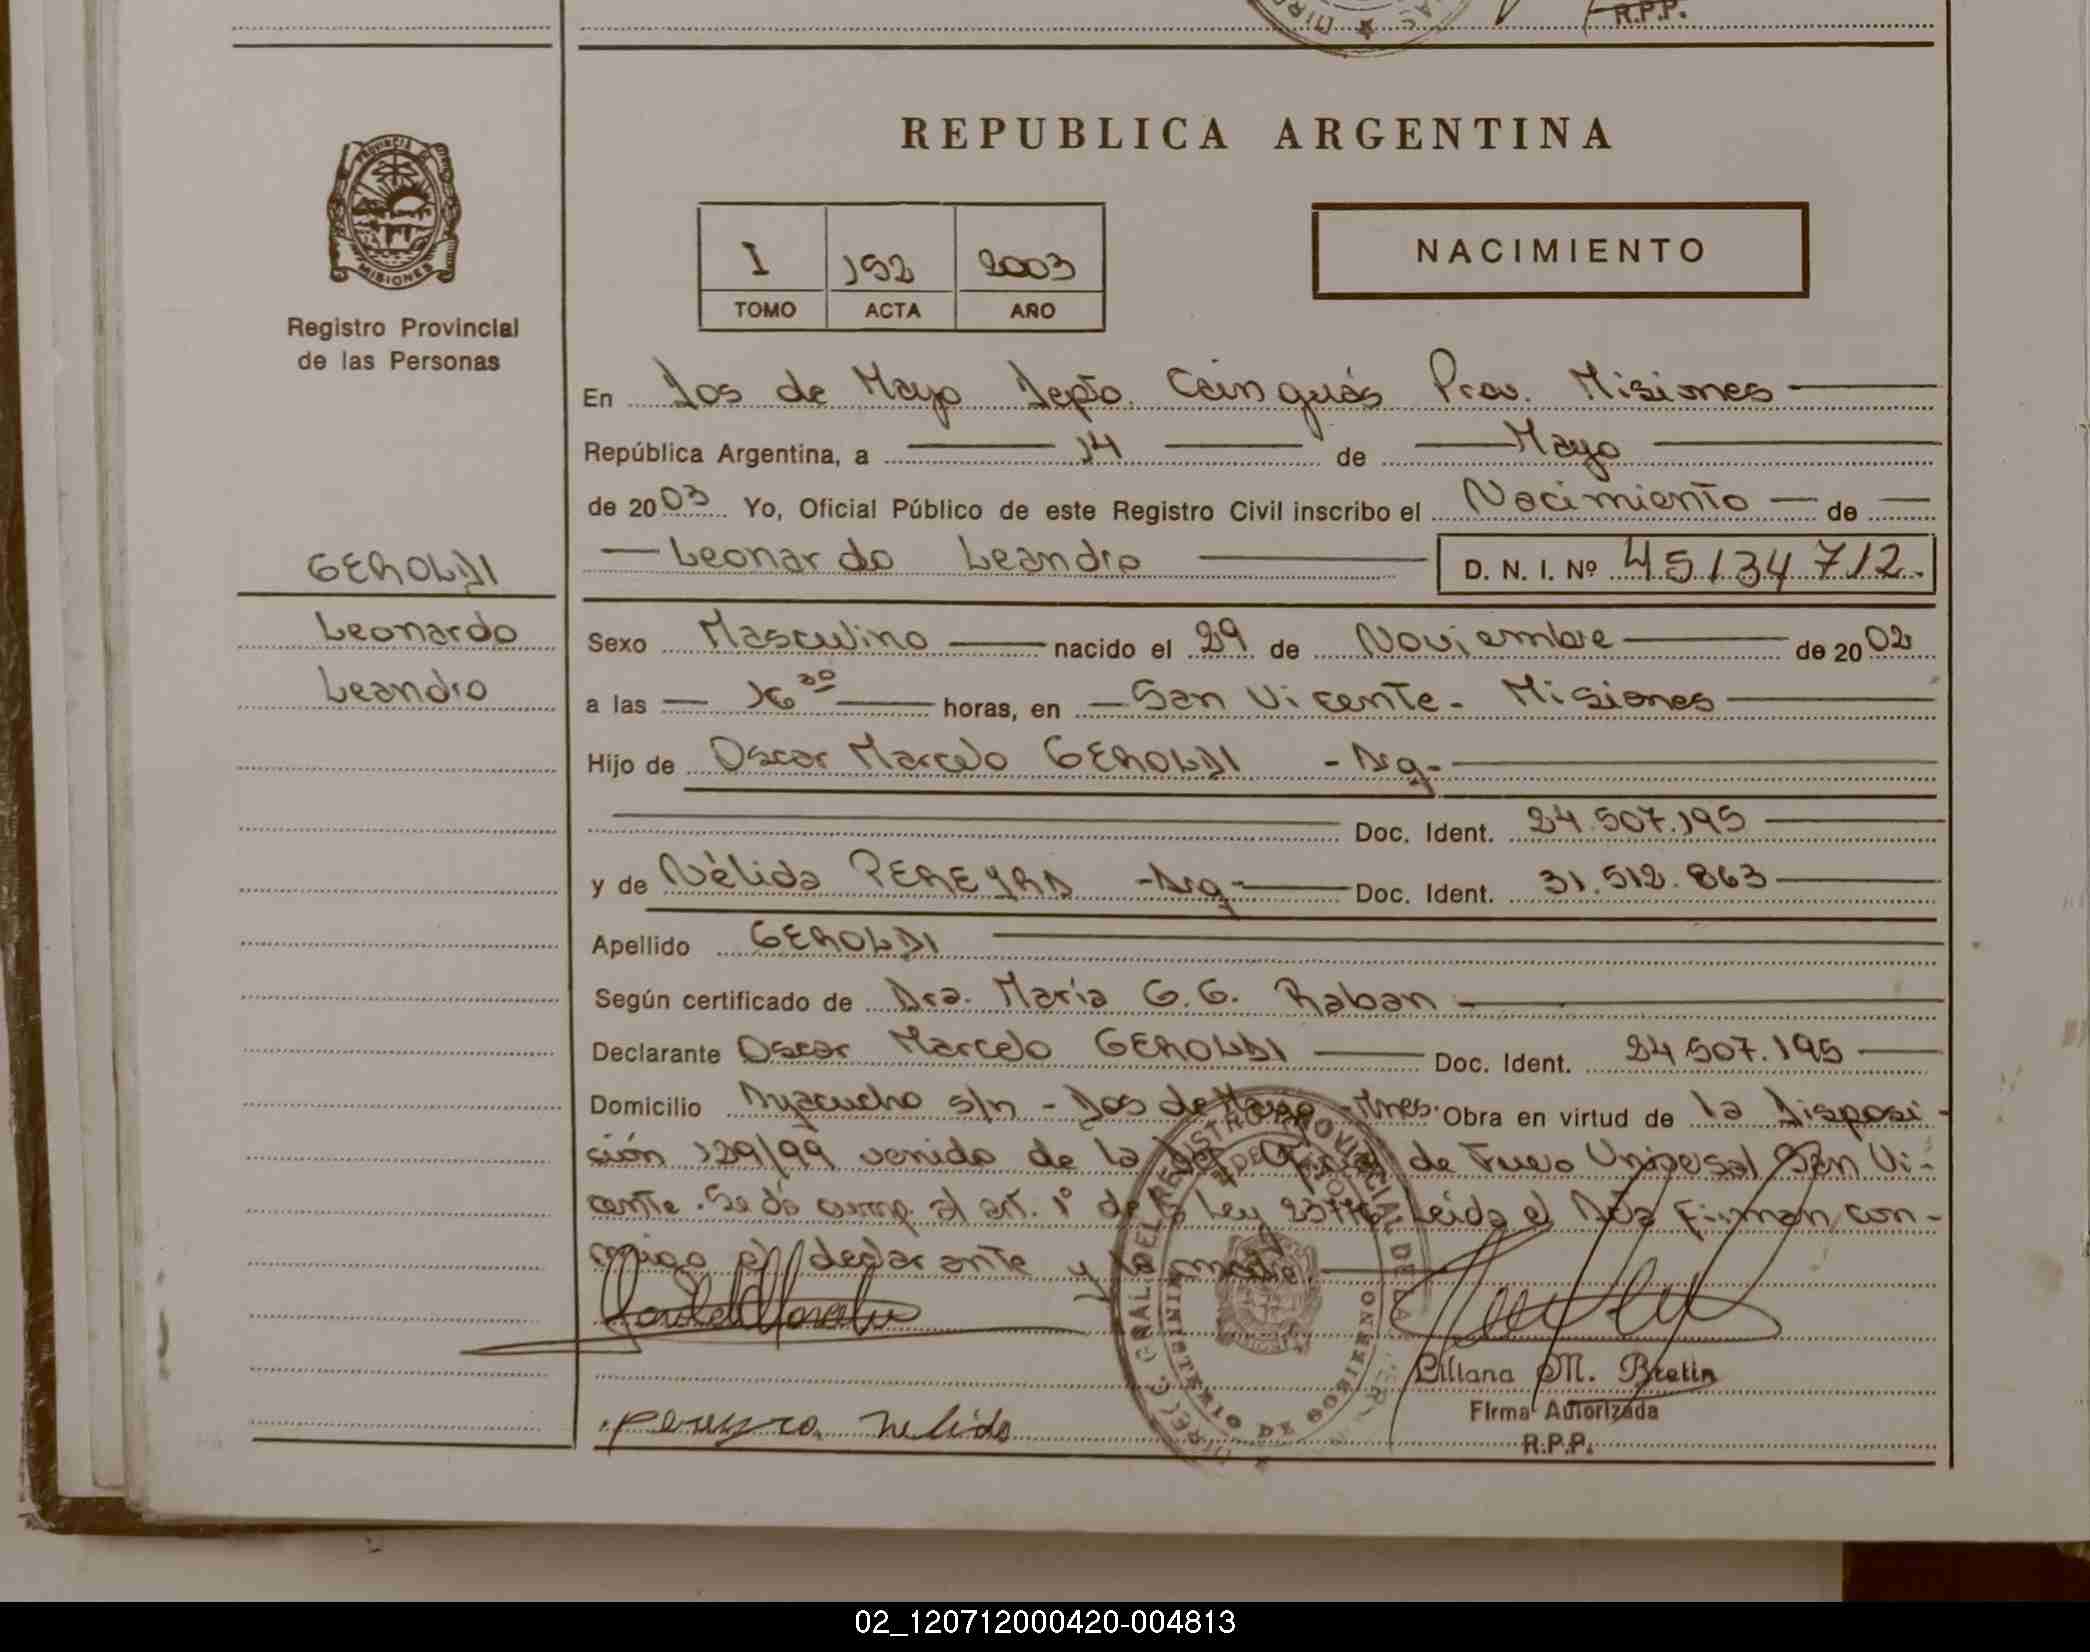 R.P.P.
REPUBLICA ARGENTINA
PROVINCIA DE
MISIONES
Registro Provincial
de las Personas
I 192 2003
TOMO ACTA AÑO
NACIMIENTO
En Dos de Mayo Depto. Cainguás Prov. Misiones
República Argentina, a 14 de Mayo
de 2003 Yo, Oficial Público de este Registro Civil inscribo el Nacimiento de
GEROLDI
Leonardo Leandro D. N. I. Nº 45134712.
Leonardo
Sexo Masculino nacido el 29 de Noviembre de 2002
Leandro
a las 16 30 horas, en San Vicente - Misiones
Hijo de Oscar Marcelo GEROLDI - Arg -
Doc. Ident. 24.507.195
y de Nélida PEREYRA - Arg - Doc. Ident. 31.512.863
Apellido GEROLDI
Según certificado de Dra. María G. G. Raban
Declarante Oscar Marcelo GEROLDI Doc. Ident. 24.507.195
Domicilio Ayacucho s/n - Dos de Mayo - Mnes. Obra en virtud de la Disposi-
ción 129/99 venida de la de Fuero Universal San Vi-
cente. Se dá cump. al art. 1º de la Ley 23776 Leida el Acta Firman con-
migo el declarante y la madre.
pereyra nelida
Liliana M. Bretin
Firma Autorizada
R.P.P.
02_120712000420-004813